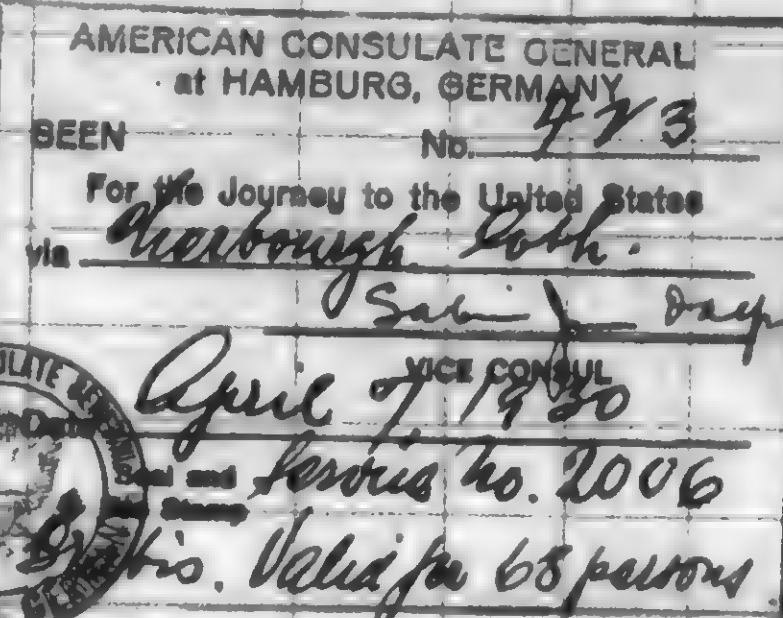 AMERICAN CONSULATE GENERAL
at HAMBURG, GERMANY
SEEN No. 423
For the Journey to the United States
via Cherbourgh
VICE CONSUL
April 7, 1930
Seal and Service No. 2006
Stamp
Gratis. Valid for 68 persons